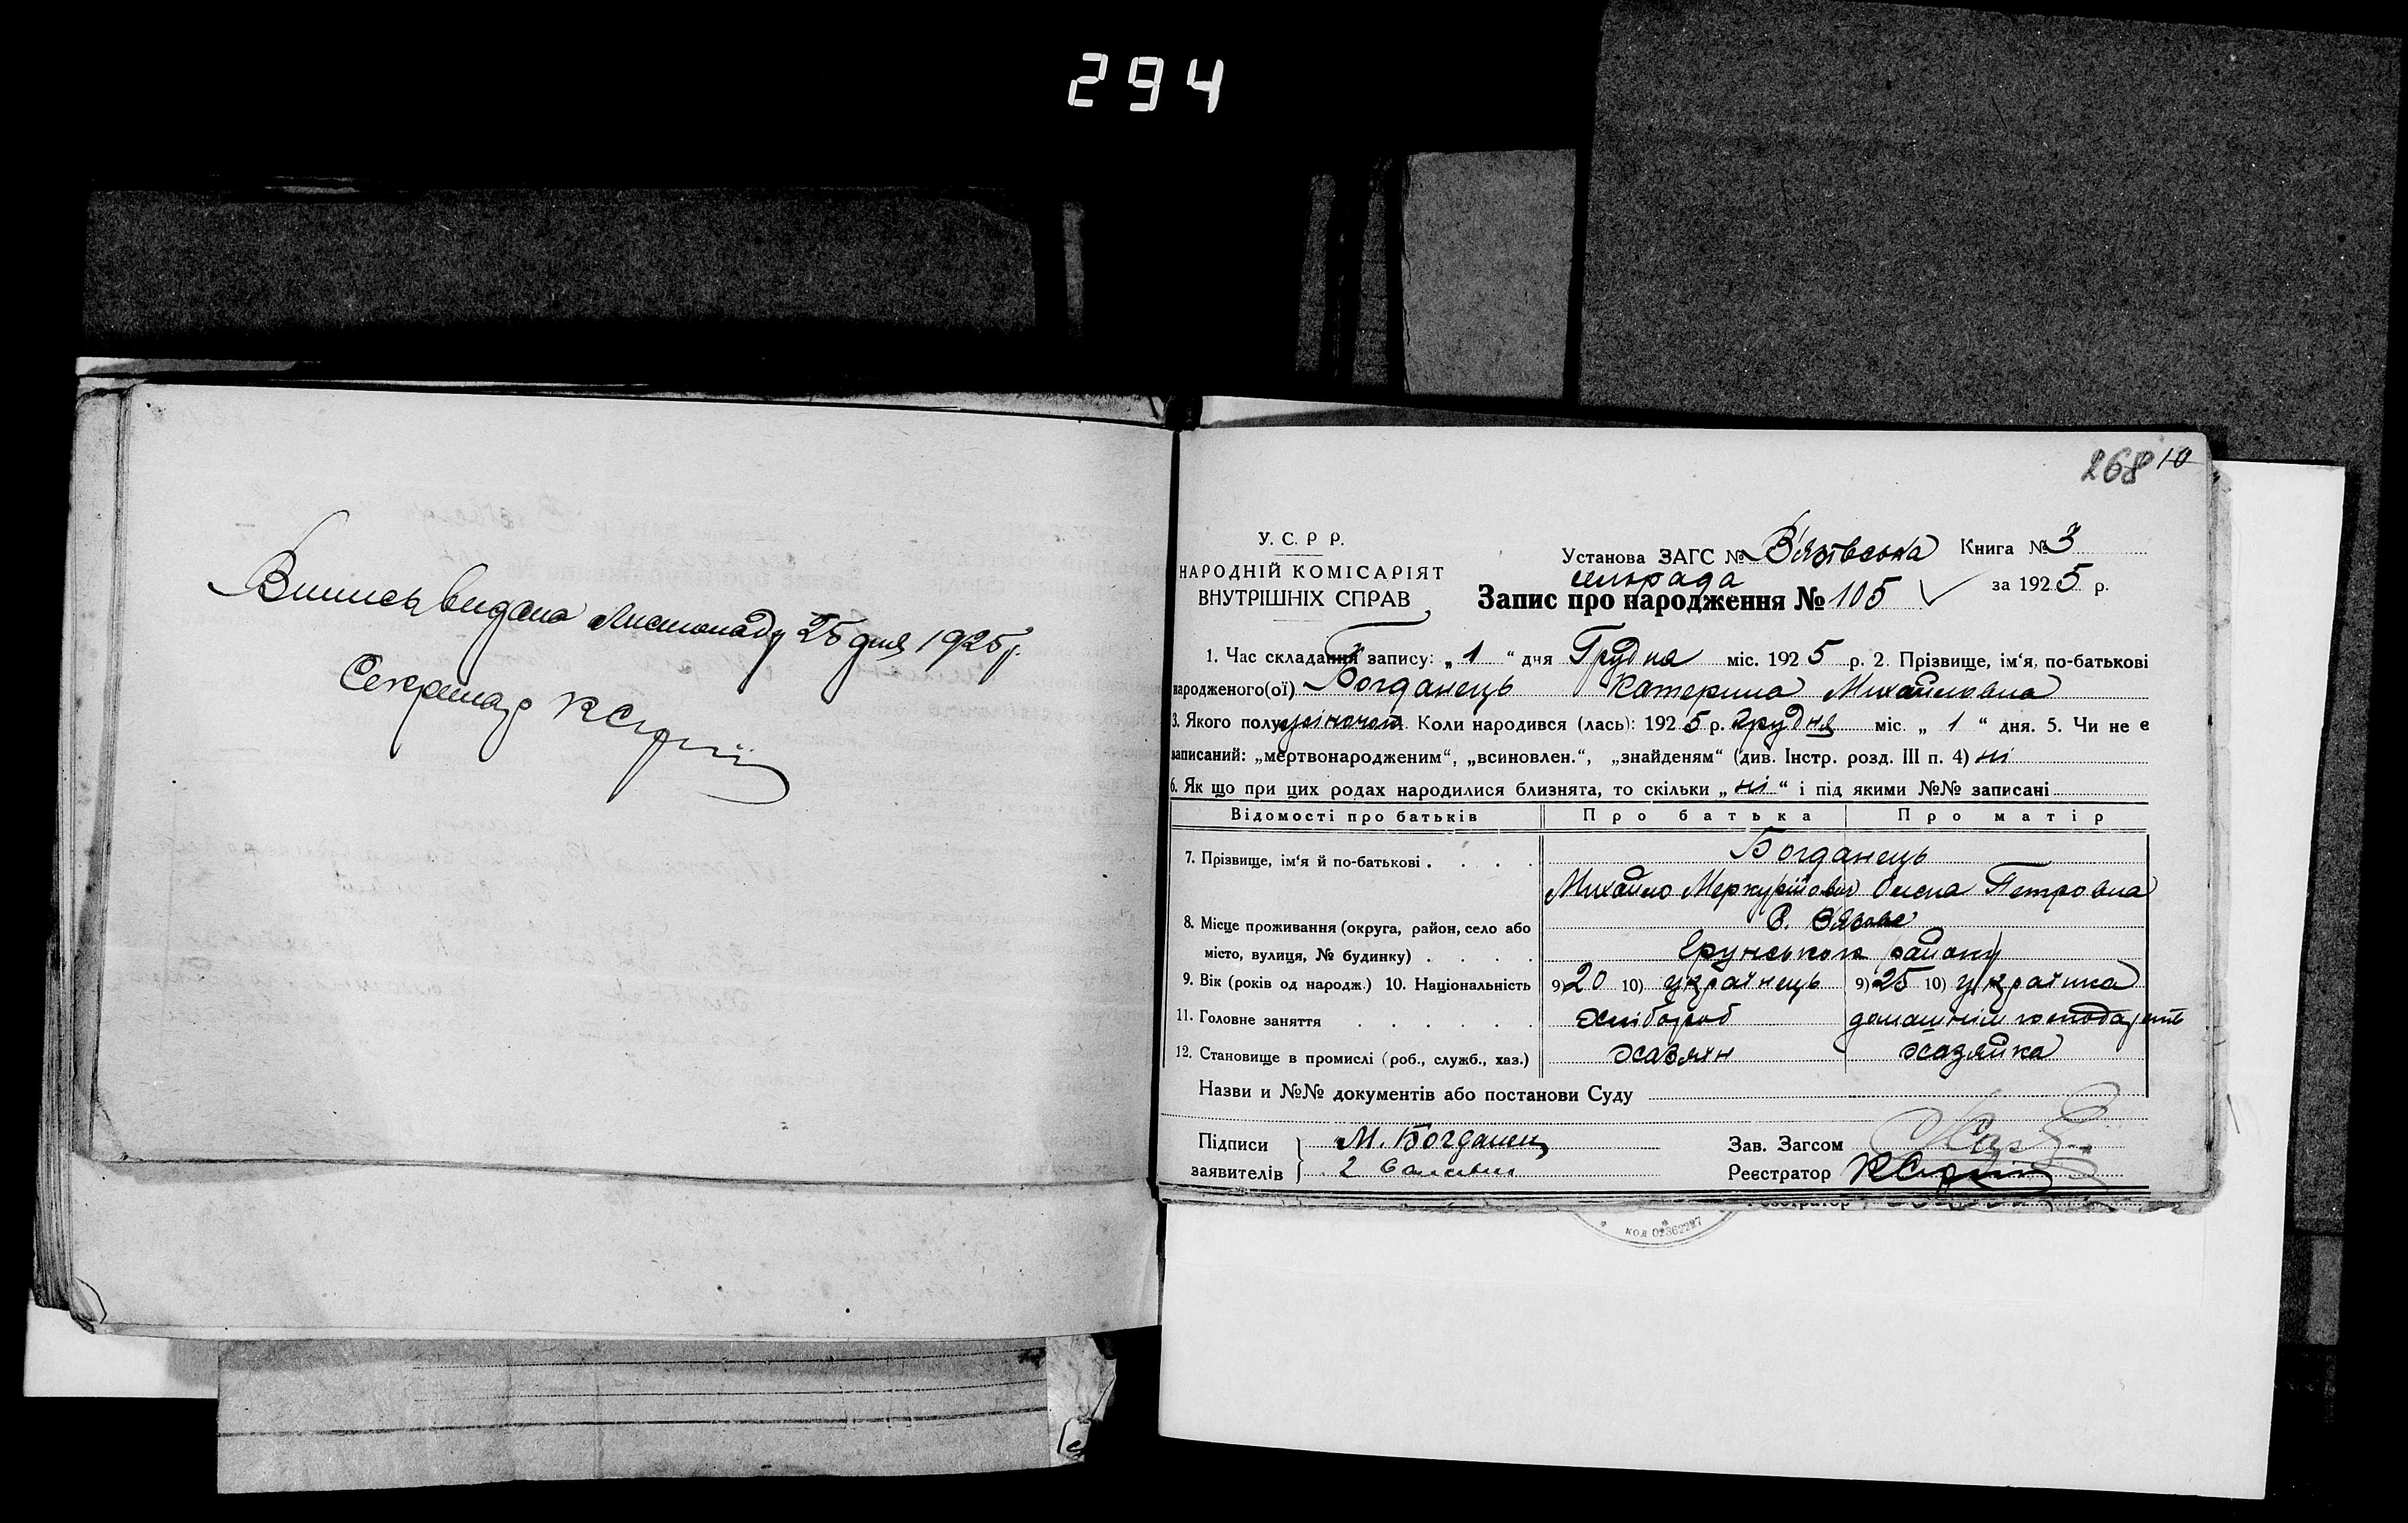 294
Випись видана Листопаду 25 дня 1925 р.
Секретар
268 10
У. С. Р Р.
НАРОДНІЙ КОМІСАРІЯТ
ВНУТРІШНІХ СПРАВ
Установа ЗАГС № В'язівська Книга № 3
сільрада
за 1925 р.
Запис про народження № 105
1. Час складання запису: „ 1 “ дня Грудня міс. 1925 р. 2. Прізвище, ім‘я, по-батькові
народженого(ої) Богданець Катерина Михайловна
3. Якого полу жіночої. Коли народився (лась): 1925 р. грудня міс. „ 1 “ дня. 5. Чи не є
записаний: „мертвонародженим“, „всиновлен.“, „знайденям“ (див. Інстр. розд. III п. 4) ні
6. Як що при цих родах народилися близнята, то скільки „ ні “ і під якими №№ записані
Відомості про батьків Про батька Про матір
7. Прізвище, ім‘я й по-батькові . . . . Богданець
Михайло Меркурійович Олена Петровна
8. Місце проживання (округа, район, село або С. В'язове
місто, вулиця, № будинку) . . . . району
9. Вік (років од народж.) 10. Національність 9) 20 10) українець 9) 25 10) українка
11. Головне заняття . . . . . . хлібороб домашнім господарств
12. Становище в промислі (роб., служб., хаз.) хазяїн хазяйка
Назви и №№ документів або постанови Суду
Підписи М. Богданец
заявителів 2
Зав. Загсом
Реєстратор
Реєстратор
код 02362227